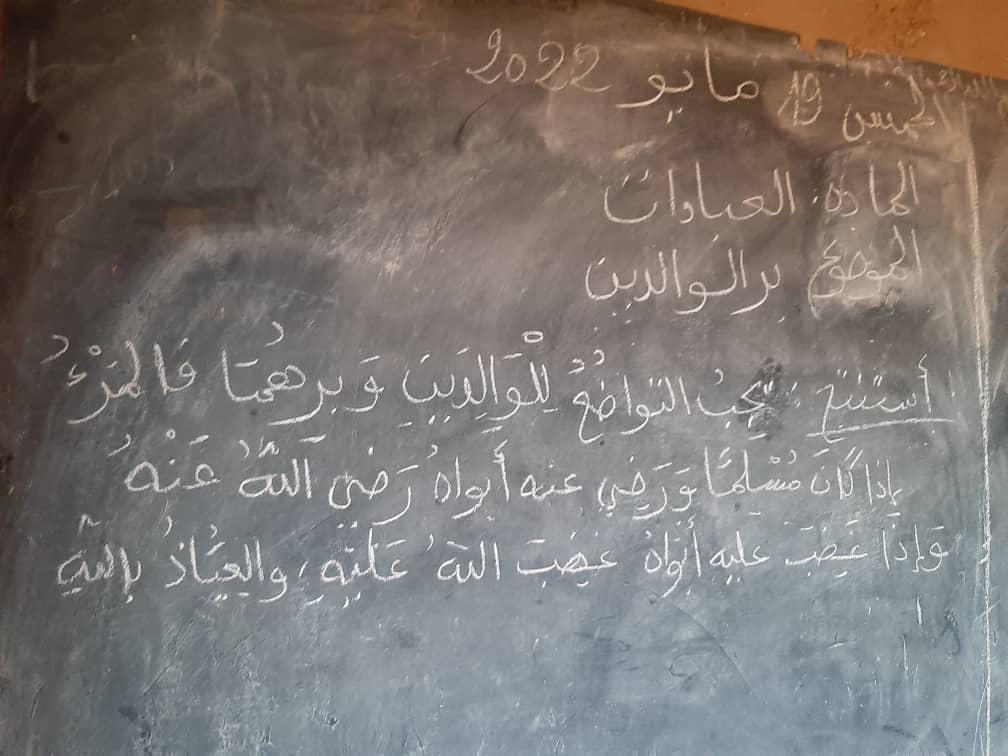 الخميس 19 مايو 2022
المادة: العبادات
الموضوع بر الوالدين
أستنتج: يجبُ التواضعُ لِلْوَالِدَيْنِ وَبرهمَا فَالمَرْءُ
إذا كَانَ مُسْلِمًا وَرَضِيَ عنه أَبواهُ رَضِيَ اللَّهُ عَنْهُ
وَإذَا غَضِبَ عليه أَبَوَاهُ غَضِبَ اللَّهُ عَلَيْهِ، والعِيَاذُ بِاللَّهِ